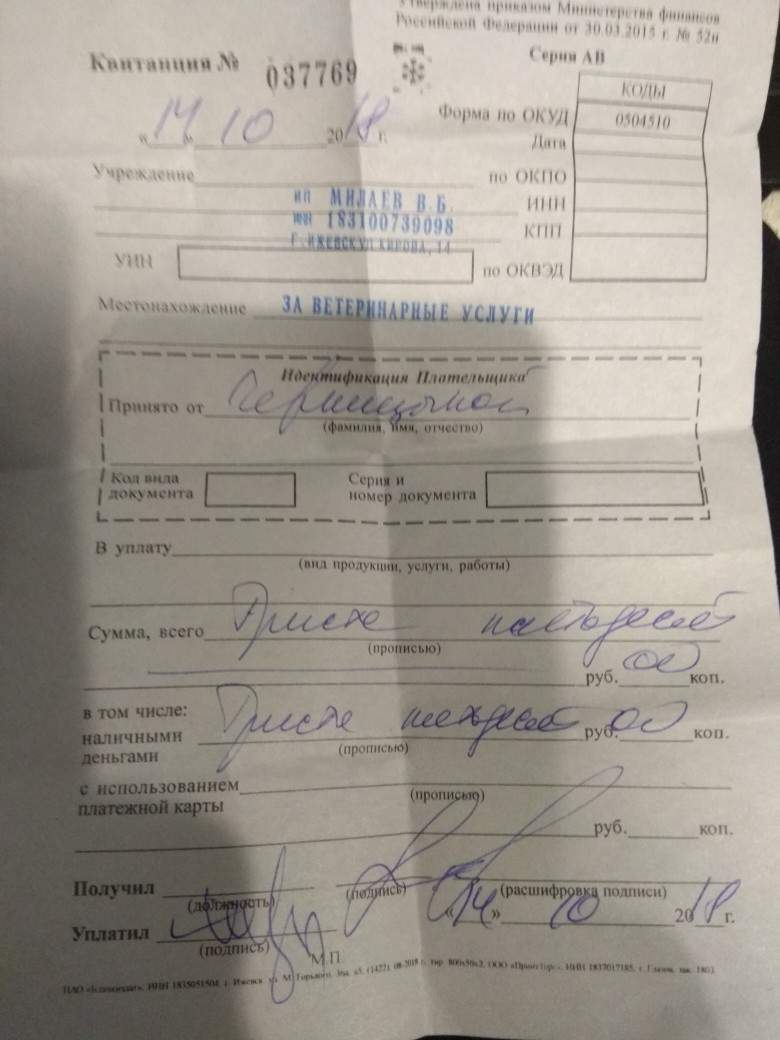 Утверждена приказом Министерства финансов
Российской Федерации от 30.03.2015 г. № 52н
Квитанция № 037769
Серия АВ
КОДЫ
Форма по ОКУД 0504510
«14» 10 2018 г.
Дата
Учреждение
по ОКПО
ИП МИЛАЕВ В.Б.
ИНН
ИНН 183100739098
КПП
Г. ИЖЕВСК УЛ КИРОВА, 14
УИН
по ОКВЭД
Местонахождение ЗА ВЕТЕРИНАРНЫЕ УСЛУГИ
Идентификация Плательщика
Принято от
(фамилия, имя, отчество)
Код вида
документа
Серия и
номер документа
В уплату
(вид продукции, услуги, работы)
Сумма, всего Триста пятьдесят
(прописью)
руб. 00 коп.
в том числе:
наличными
деньгами
Триста пятьдесят руб. 00 коп.
(прописью)
с использованием
платежной карты
(прописью)
руб. коп.
Получил
(должность) (подпись) (расшифровка подписи)
Уплатил
«14» 10 2018 г.
(подпись)
М.П.